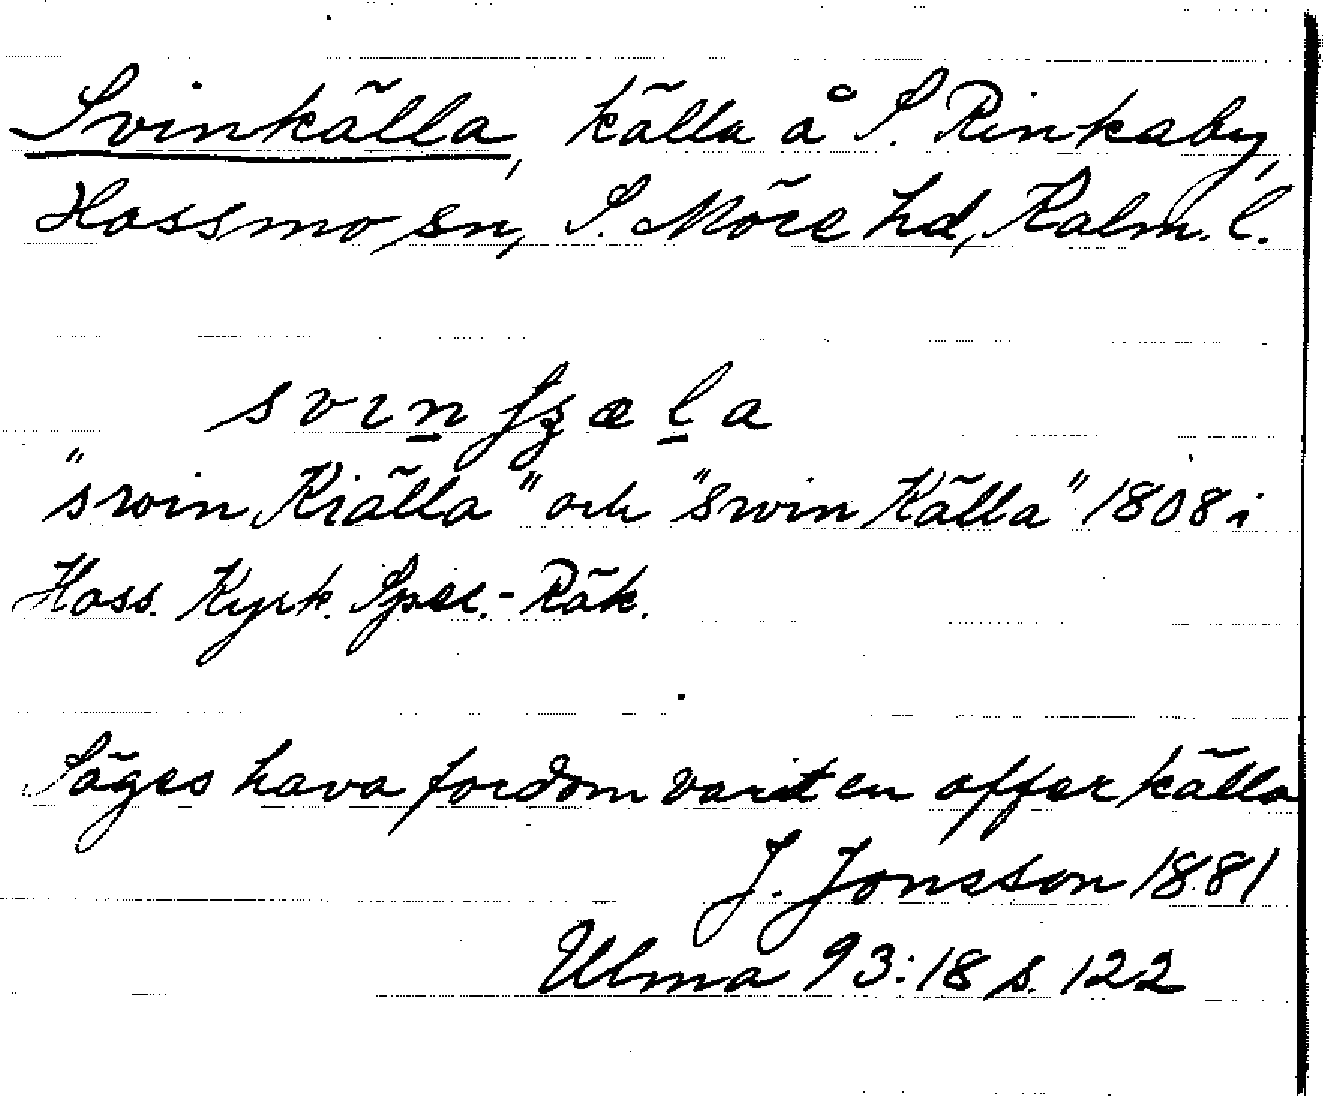 Svinkälla, källa å S. Rinkaby,
Hossmo sn, S. Möre hd, Kalm. l.
svin̲ʃʒæl̲a
"swin Kiälla" och "swin Källa" 1808 i
Hoss. Kyrk. Spec.-Räk.
Säges hava fordom varit en offerkälla
J. Jonsson 1881
Ulma 93:18 s. 122